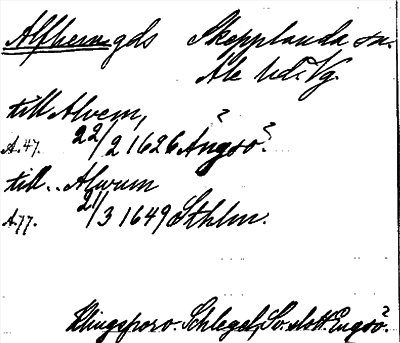 Alfhem gds Skepplanda sn.
Ale hd. Vg.
till Alvem, ?
A.47. 22/2 1626 Ängsö?
till .. Alwum
A.77. 21/3 1649 Sthlm.
Klingspor o. Schlegel, Sv. slott. Engsö?